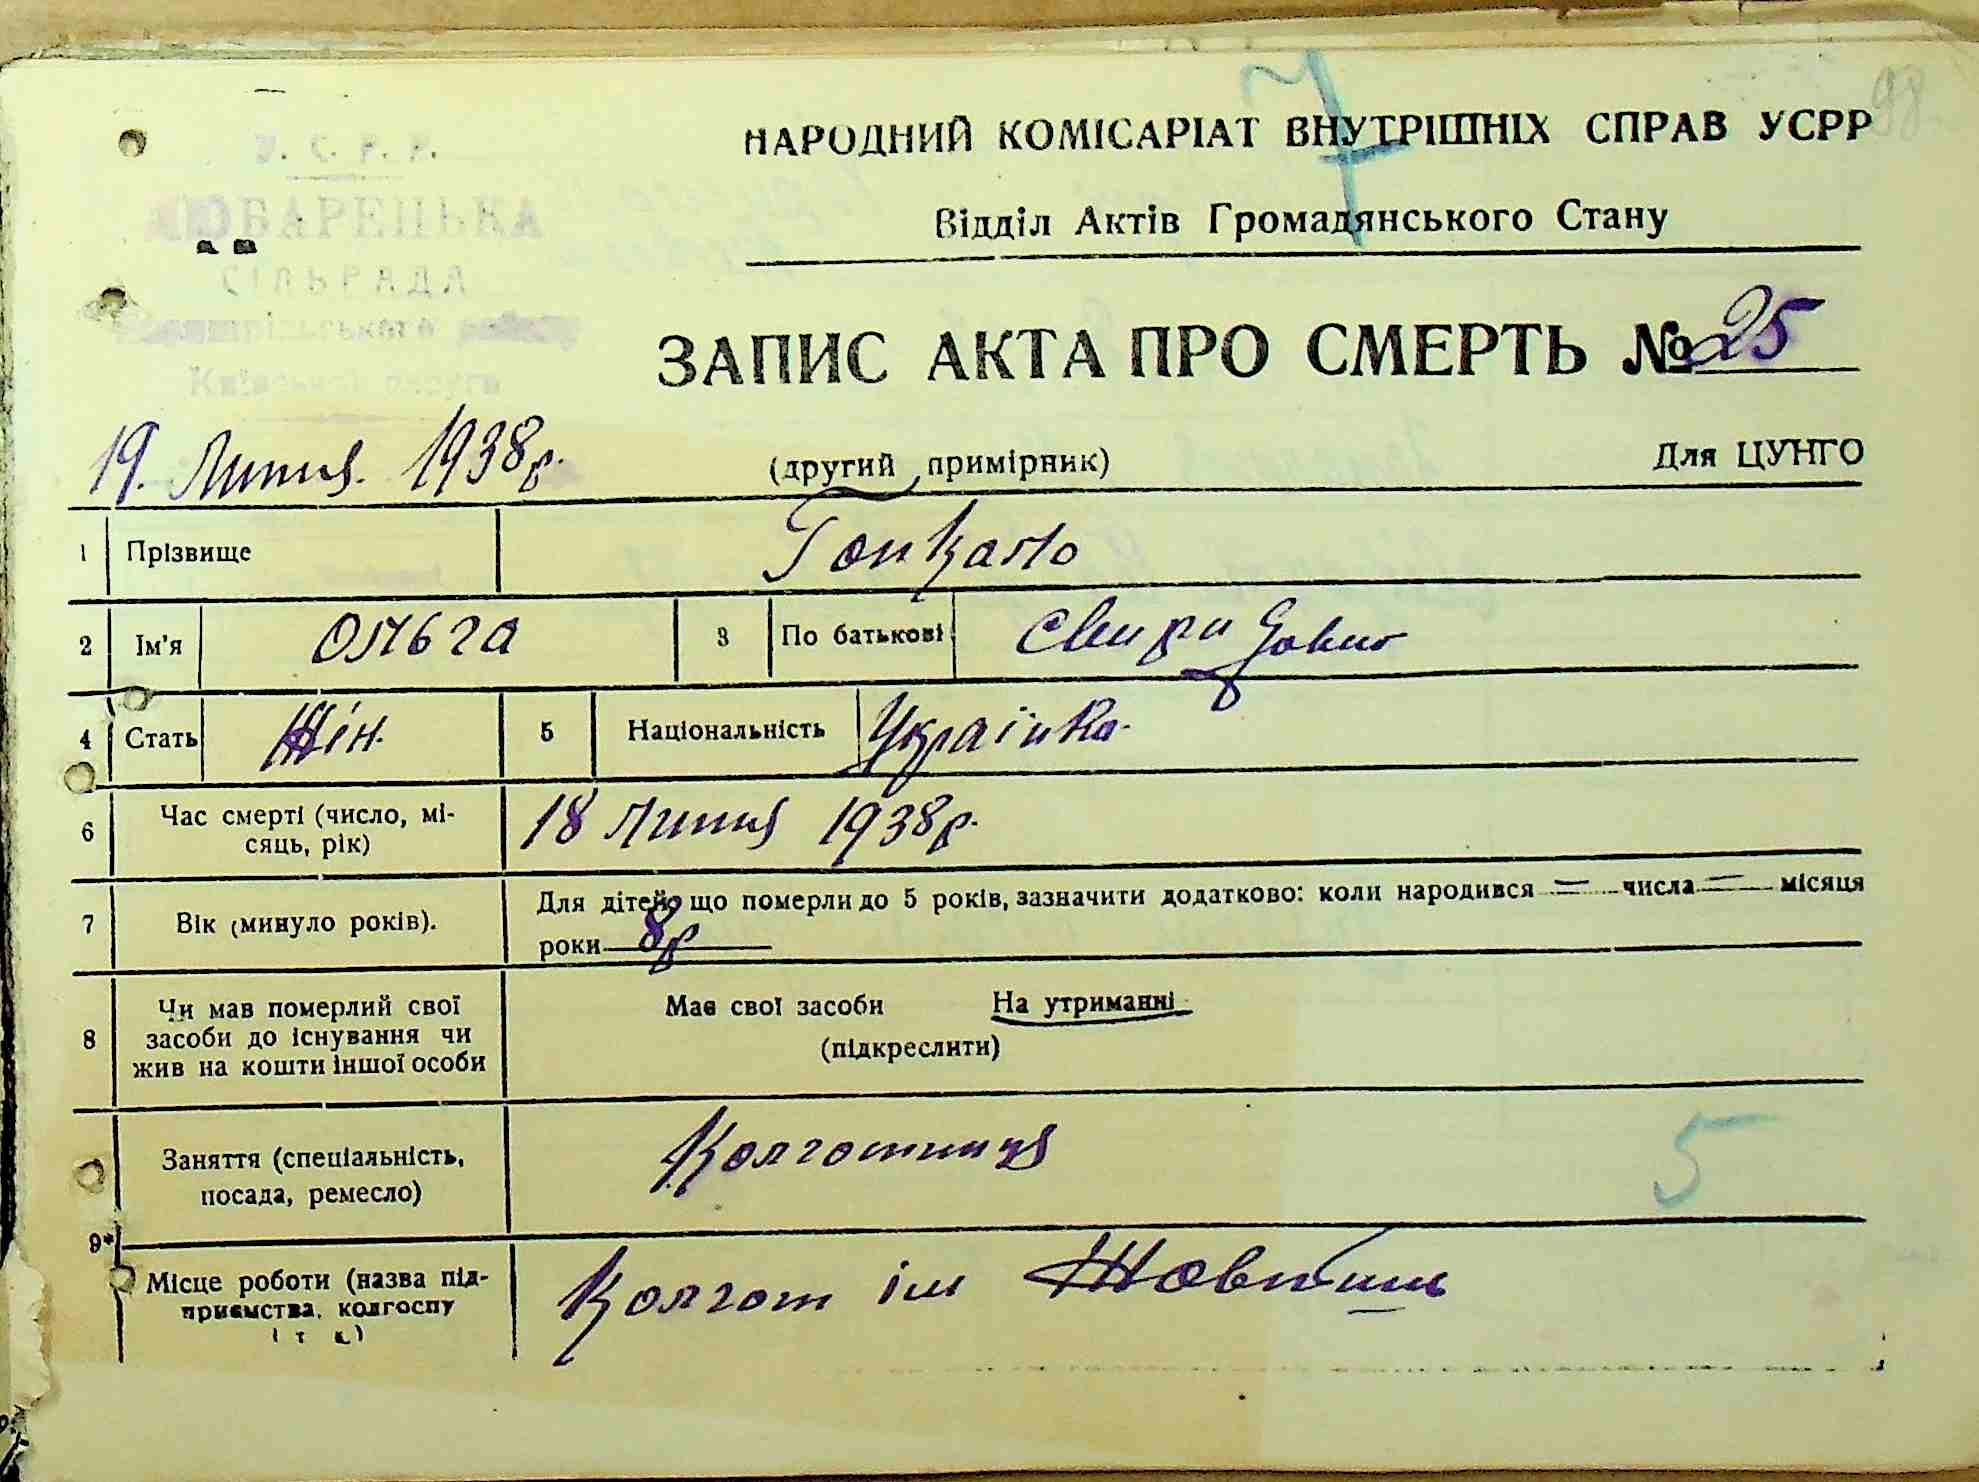 98
7
У. С. Р. Р.
НАРОДНИЙ КОМІСАРІАТ ВНУТРІШНІХ СПРАВ УСРР
СІЛЬРАДА
Відділ Актів Громадянського Стану
ЗАПИС АКТА ПРО СМЕРТЬ № 25
19. Липня. 1938 р.
(другий примірник)
Для ЦУНГО
1 Прізвище Гонкало
2 Ім'я Ольга 3 По батькові Свиридовна
4 Стать Жін. 5 Національність Українка.
6 Час смерті (число, мі-
сяць, рік) 18 Липня 1938 р.
7 Вік (минуло років). Для дітей, що померли до 5 років, зазначити додатково: коли народився — числа — місяця
роки 8 р
8 Чи мав померлий свої
засоби до існування чи
жив на кошти іншої особи
Має свої засоби На утриманні
(підкреслити)
9* Заняття (спеціальність,
посада, ремесло) Колгошниця
5
Місце роботи (назва під-
приємства, колгоспу
і т. д.) Колгот ім Жовтня